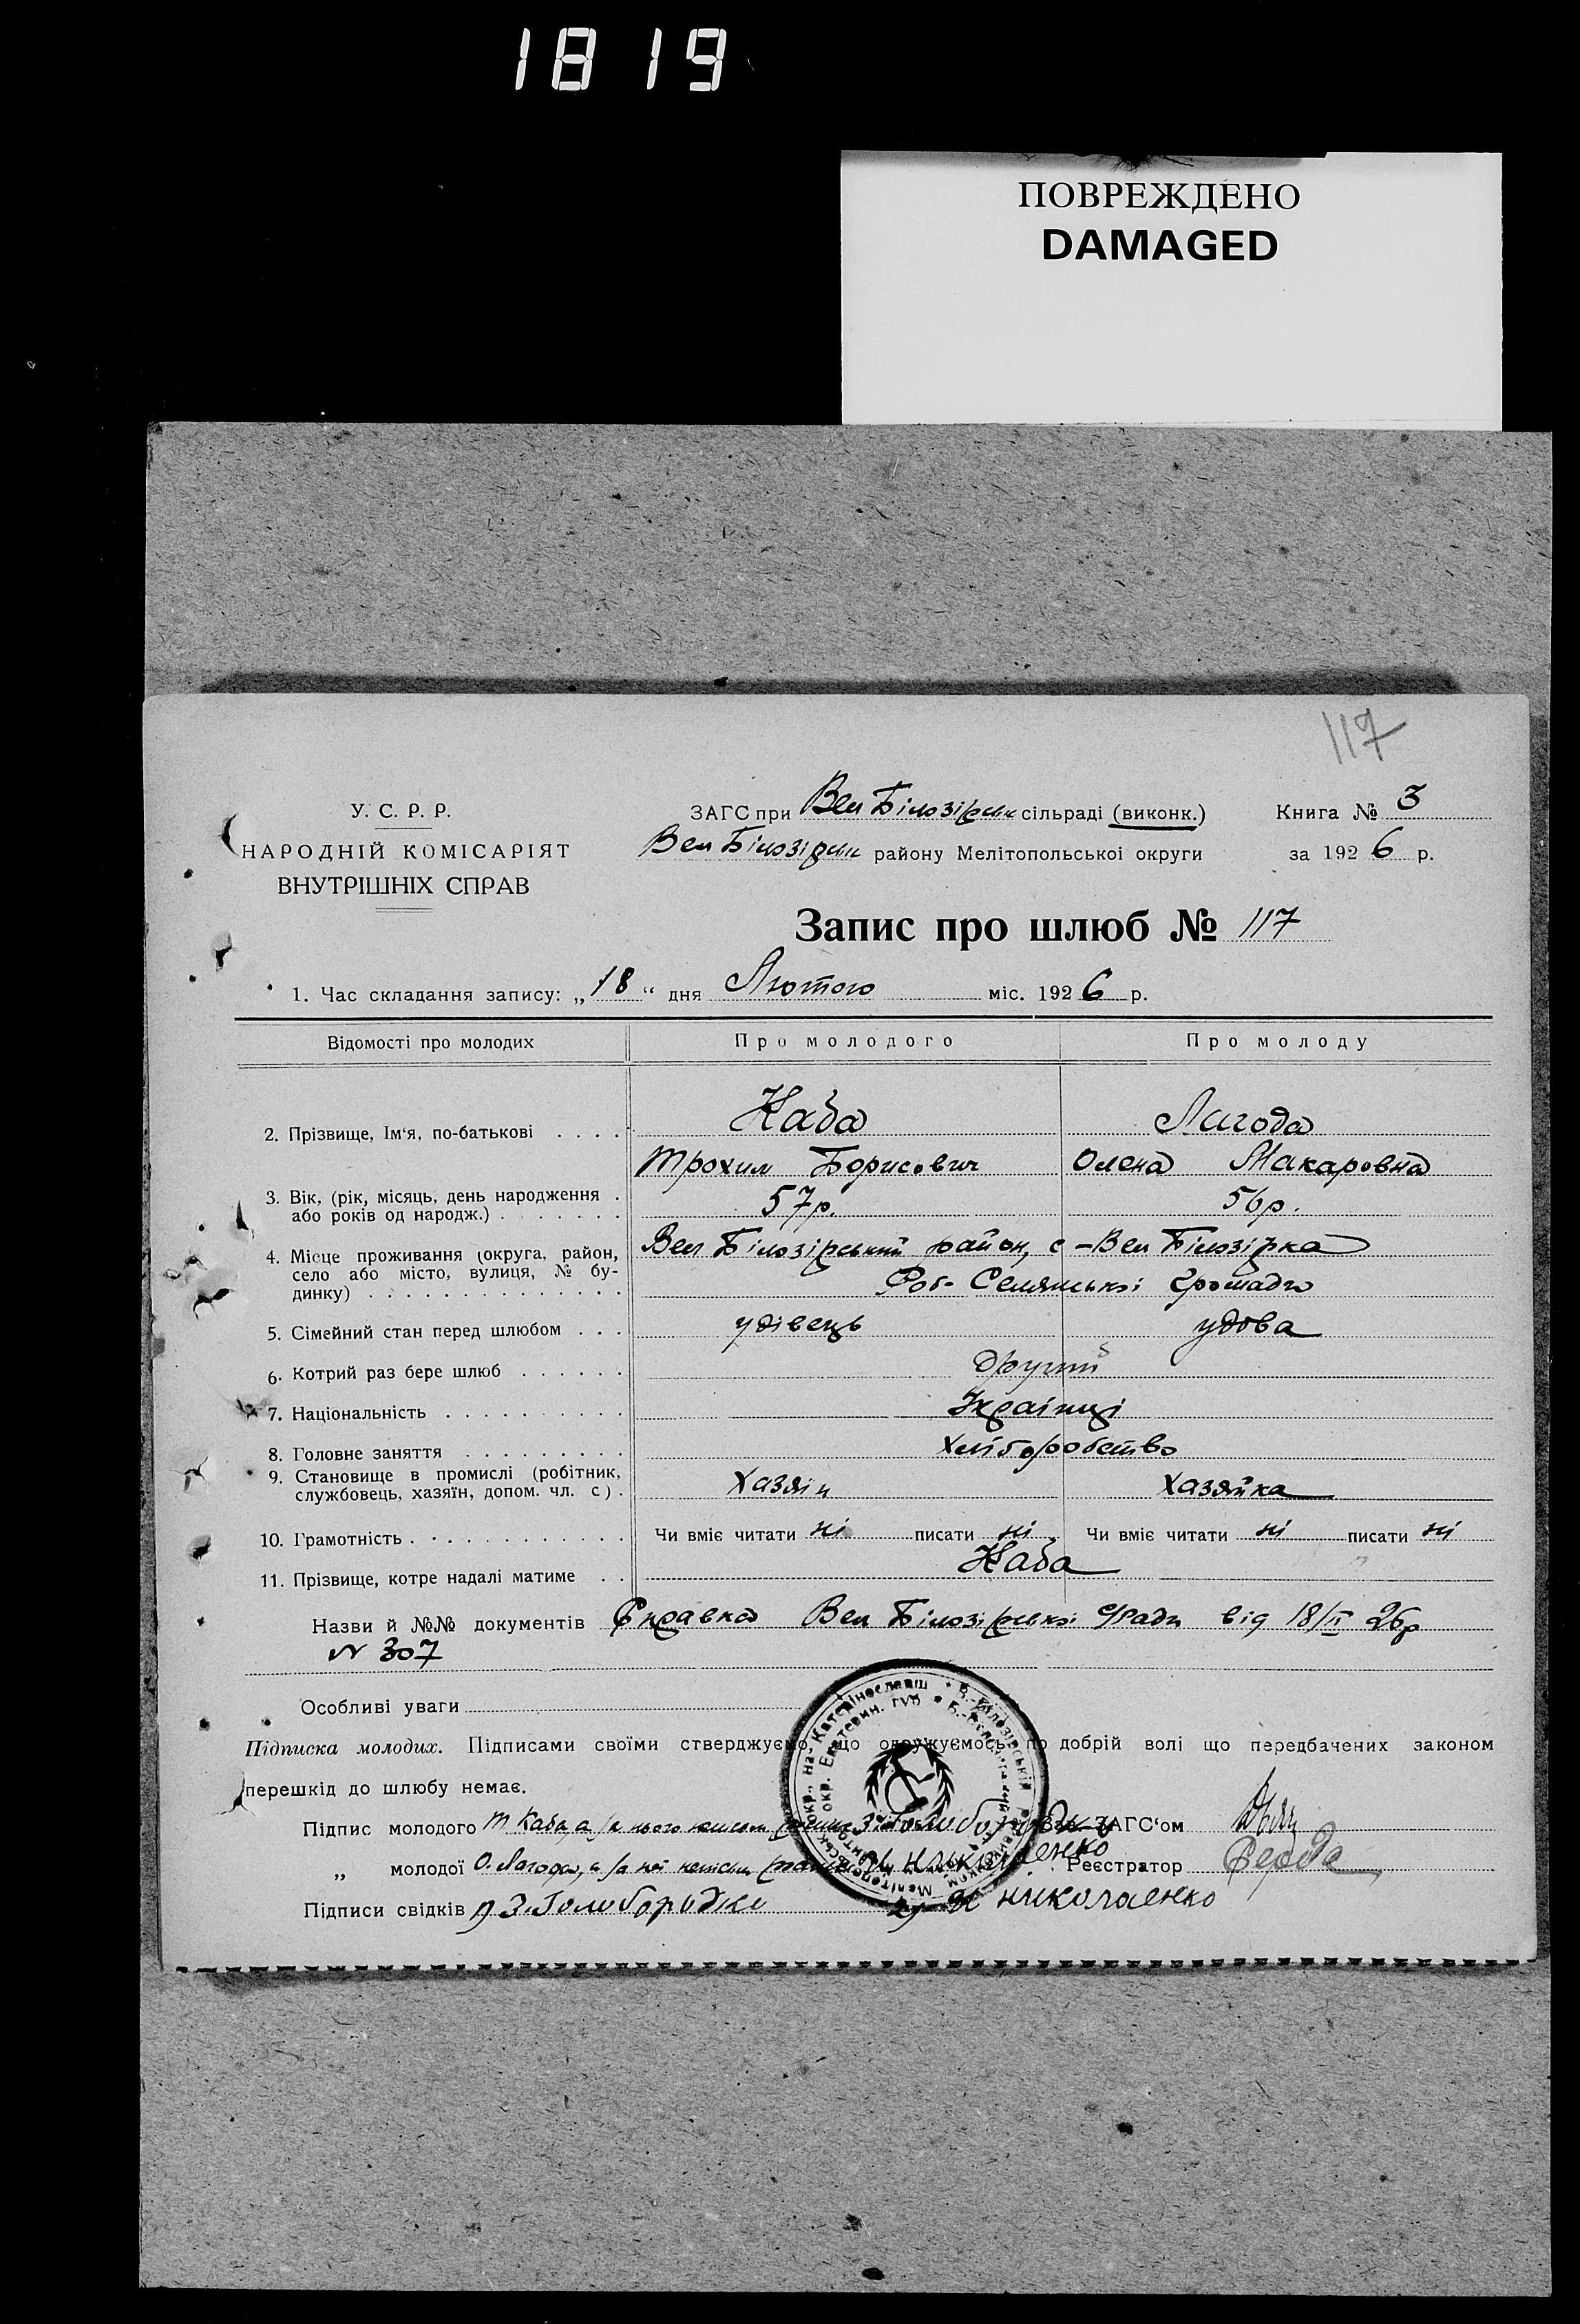 1819
ПОВРЕЖДЕНО
DAMAGED
117
У. С. Р. Р.
НАРОДНІЙ КОМІСАРІЯТ
ВНУТРІШНІХ СПРАВ
ЗАГС при Вел Білозірськ сільраді (виконк.)
Вел Білозірськ району Мелітопольської округи
Книга № 3
за 1926 р.
Запис про шлюб № 117
1. Час складання запису: „18“ дня Лютого міс. 1926 р.
Відомості про молодих Про молодого Про молоду
2. Прізвище, Ім‘я, по-батькові Каба Лагода
Трохим Борисович Олена Макаровна
3. Вік, (рік, місяць, день народження 57р. 56р.
або років од народж.)
4. Місце проживання (округа, район, Вел Білозірський район, с-Вел Білозірка
село або місто, вулиця, № бу-
динку) Роб- Селянської громади
5. Сімейний стан перед шлюбом удівець удова
6. Котрий раз бере шлюб другий
7. Національність Українці
8. Головне заняття хліборобство
9. Становище в промислі (робітник,
службовець, хазяїн, допом. чл. с). Хазяїн хазяйка
10. Грамотність Чи вміє читати ні писати ні Чи вміє читати ні писати ні
11. Прізвище, котре надалі матиме Каба
Назви й №№ документів Справка Вел Білозірської С/Ради від 18/II 26р
N 307
Особливі уваги
Підписка молодих. Підписами своїми стверджуємо, що одружуємось по добрій волі що передбачених законом
перешкід до шлюбу немає.
Підпис молодого Т Каба, а за нього Зав. ЗАГС‘ом
„ молодої О. Лагода, а за неї Николаенко Реєстратор Серда
Підписи свідків 1) З. Голобородко 2) Николаенко